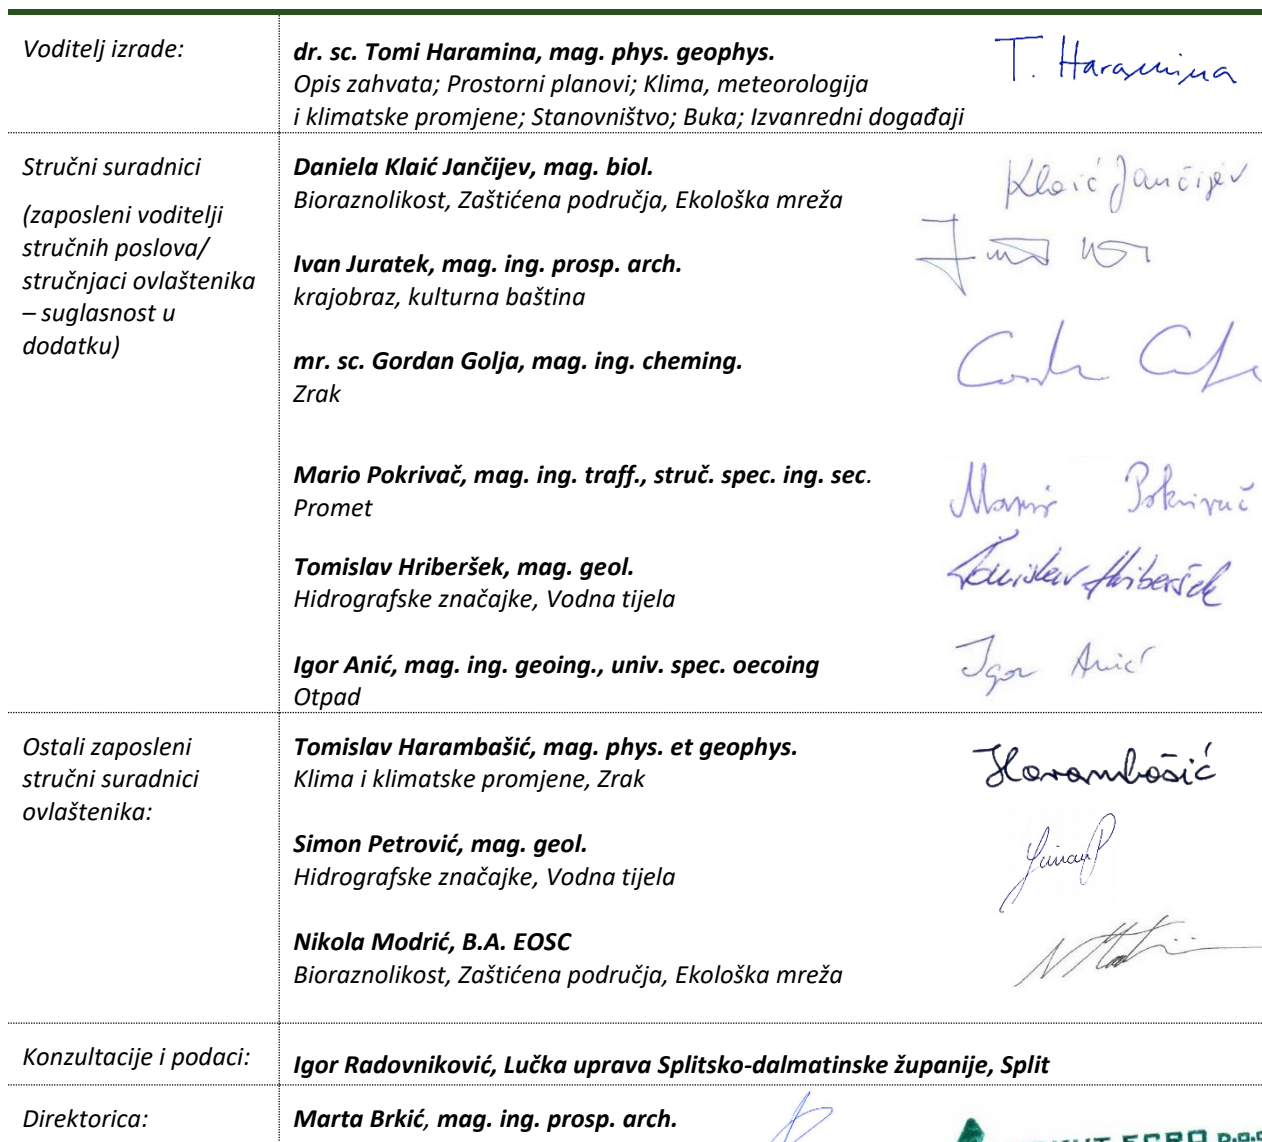 Voditelj izrade:
dr. sc. Tomi Haramina, mag. phys. geophys.
Opis zahvata; Prostorni planovi; Klima, meteorologija
i klimatske promjene; Stanovništvo; Buka; Izvanredni događaji
T. Haramina
Stručni suradnici
(zaposleni voditelji
stručnih poslova/
stručnjaci ovlaštenika
– suglasnost u
dodatku)
Daniela Klaić Jančijev, mag. biol.
Bioraznolikost, Zaštićena područja, Ekološka mreža
Klaić Jančijev
Ivan Juratek, mag. ing. prosp. arch.
krajobraz, kulturna baština
mr. sc. Gordan Golja, mag. ing. cheming.
Zrak
Mario Pokrivač, mag. ing. traff., struč. spec. ing. sec.
Promet
Mario Pokrivač
Tomislav Hriberšek, mag. geol.
Hidrografske značajke, Vodna tijela
Tomislav Hriberšek
Igor Anić, mag. ing. geoing., univ. spec. oecoing
Otpad
Igor Anić
Ostali zaposleni
stručni suradnici
ovlaštenika:
Tomislav Harambašić, mag. phys. et geophys.
Klima i klimatske promjene, Zrak
Harambašić
Simon Petrović, mag. geol.
Hidrografske značajke, Vodna tijela
Simon P
Nikola Modrić, B.A. EOSC
Bioraznolikost, Zaštićena područja, Ekološka mreža
Konzultacije i podaci:
Igor Radovniković, Lučka uprava Splitsko-dalmatinske županije, Split
Direktorica:
Marta Brkić, mag. ing. prosp. arch.